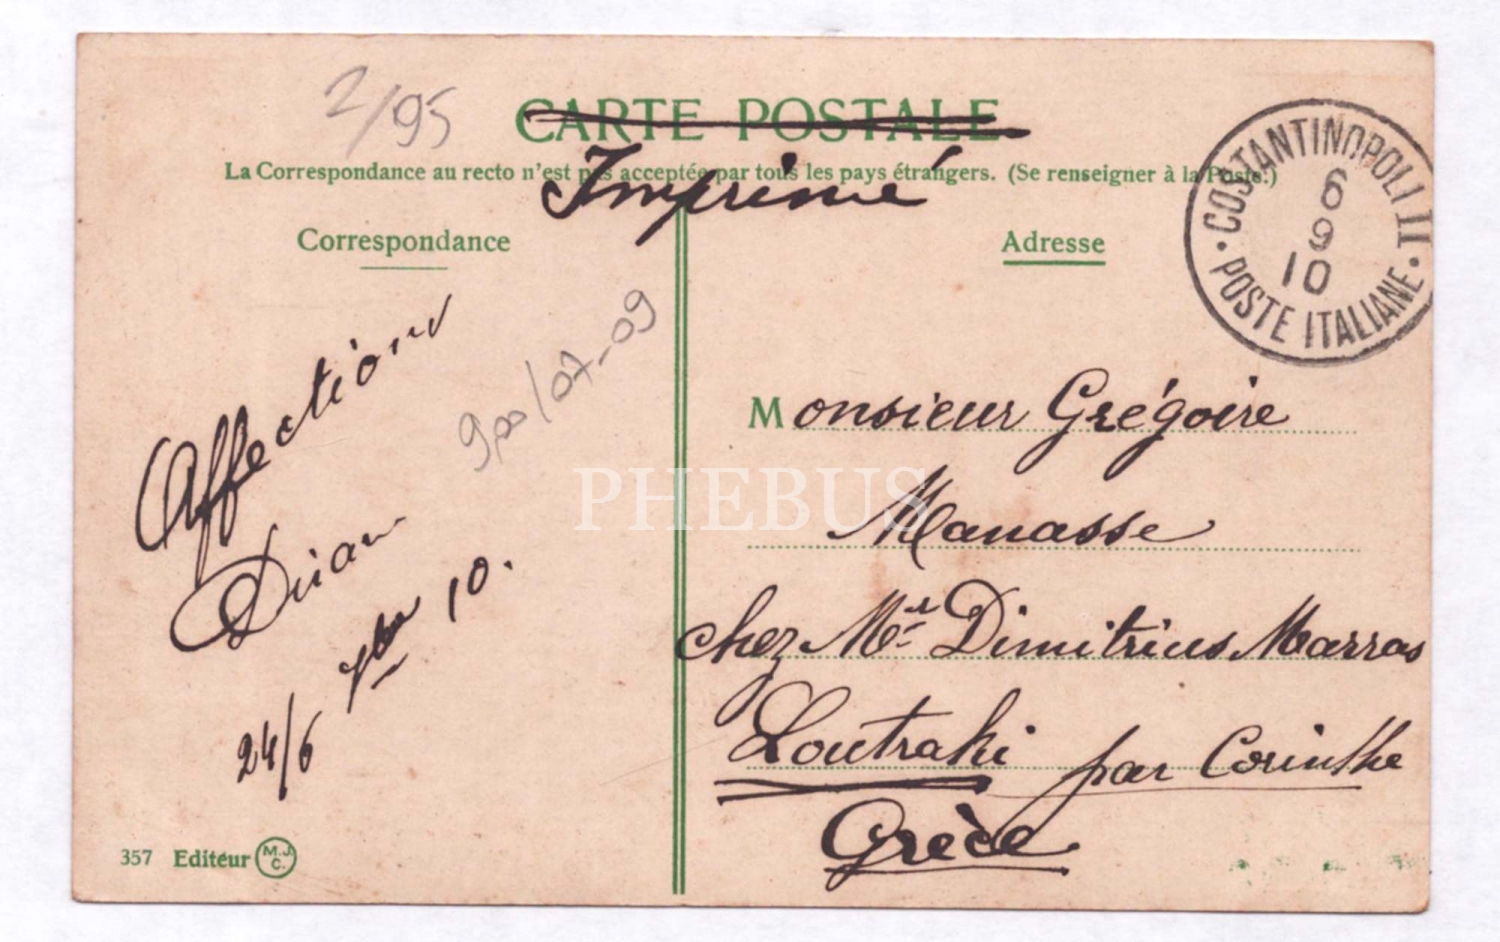 2/95
CARTE POSTALE
La Correspondance au recto n'est pas acceptée par tous les pays étrangers. (Se renseigner à la Poste.)
Imprimé
COSTANTINOPOLI II
6
9
10
POSTE ITALIANE
Correspondance
Adresse
900/07-09
Affection
24/6 7bre 10.
Monsieur Grégoire
Manasse
chez Mr Dimitrius Marras
Loutraki par Corinthe
Grèce
PHEBUS
357 Editeur M.J.C.